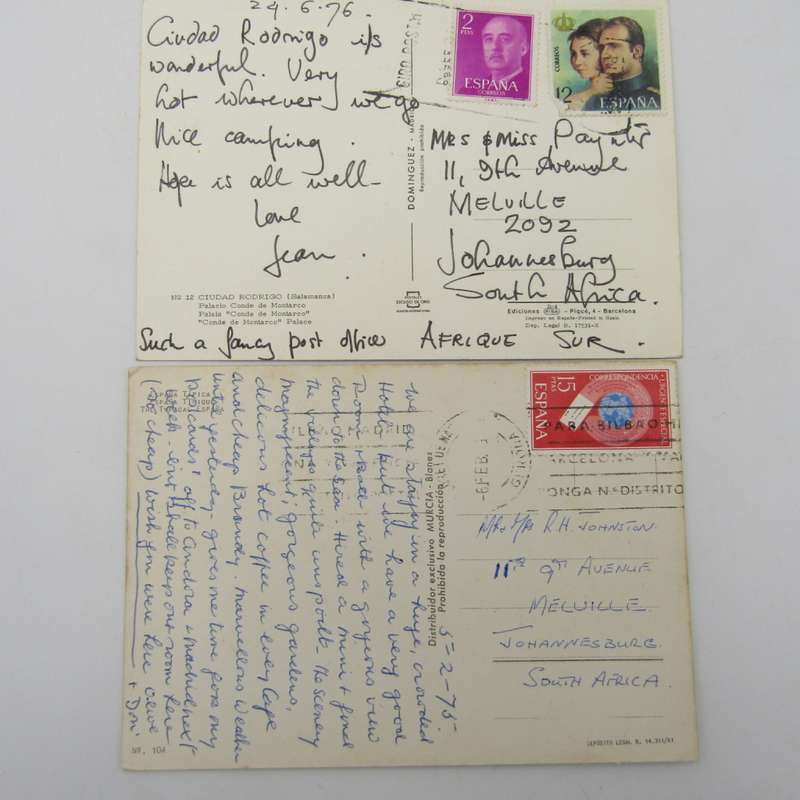 24.6.76.
Ciudad Rodrigo is
wonderful. Very
hot wherever we go
Nice camping.
Hope is all well-
Love
Jean.
Nº 12 CIUDAD RODRIGO (Salamanca)
Palacio Conde de Montarco
Palais "Conde de Montarco"
"Conde de Montarco" Palace
Such a fancy post office
DOMINGUEZ - MADRID
Reproducción prohibida
POSTALES
ESCUDO DE ORO
2
PTAS
ESPAÑA
CORREOS
CORREOS
12
ESPAÑA
Mrs & Miss Paynter
11, 9th Avenue
MELVILLE
2092
Johannesburg
South Africa.
Ediciones FISA - Piqué, 4 - Barcelona
Impreso en España-Printed in Spain
Dep. Legal B. 17531-X
AFRIQUE SUR.
5-2-75
We are staying in a huge, crowded
Hotel, but we have a very good
Room & bath with a gorgeous view
down to the sea. Hired a mini & find
the villages quite unspoilt. The scenery
magnificent, gorgeous gardens,
delicious hot coffee in every Cafe
and cheap Brandy. Marvellous Weather
until yesterday, gives me time for my
postcards! Off to Cordova & Madrid next
week - but shall keep our room here
(so cheap) Wish you were here
& Don
ESPAÑA TIPICA
Nº. 104
Distribuidor exclusivo MURCIA - Blanes
Prohibida la reproducción
CORRESPONDENCIA URGENTE
15
PTAS
ESPAÑA
6 FEB.
PARA BILBAO
BARCELONA
PONGA Nº DISTRITO
Mr & Mrs R.H. JOHNSTON.
11 9TH AVENUE
MELVILLE.
JOHANNESBURG.
SOUTH AFRICA.
DEPÓSITO LEGAL B. 14.311/61